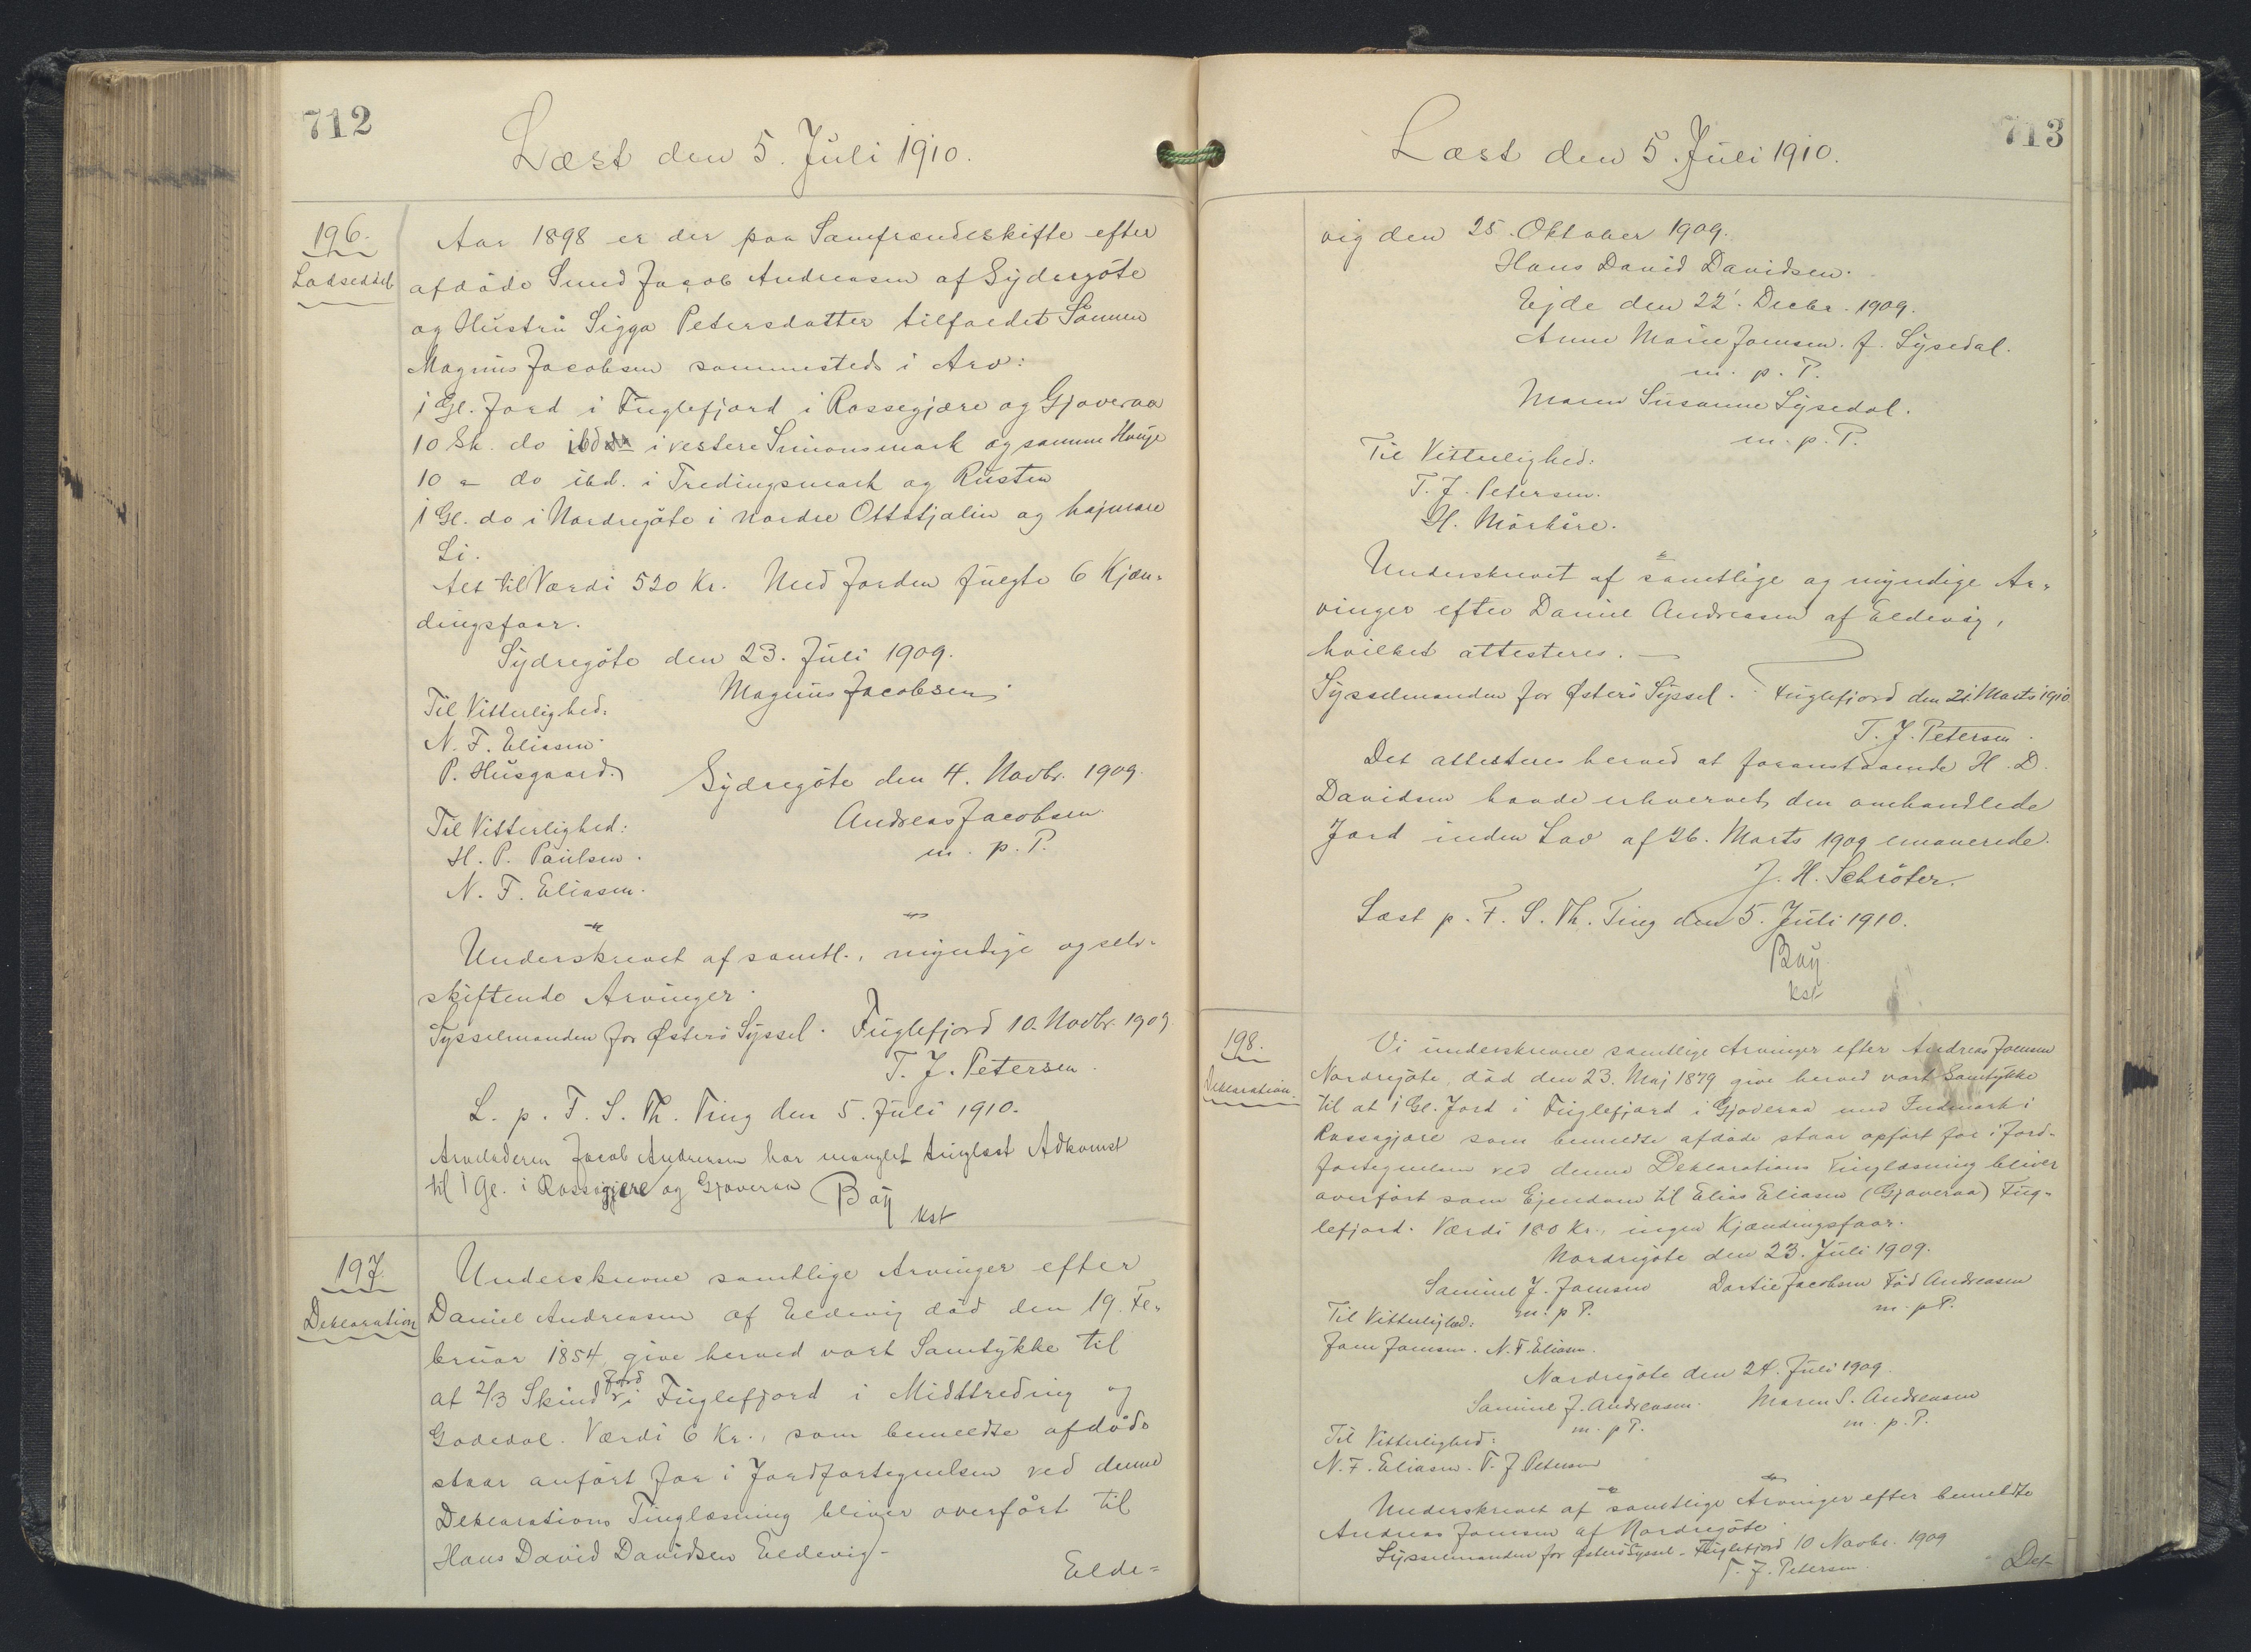 712
Læst den 5. Juli 1910.
196.
Lodseddel
Aar 1898 er der paa Samfrændeskifte efter
afdöde Smed Jacob Andreasen af Sydregöte
og Hustru Sigga Petersdatter tilfaldet Sönnen
Magnus Jacobsen sammesteds i Arv:
1 Gl. Jord i Fuglefjord i Rossegjære og Gjoveraa
10 Sk. do ibd i vestere Simonsmark og samme Hauge
10 " do ibd. i Tredingsmark og Rusten
1 Gl. do i Nordregöte i nordre Ottetjalin og hajmare
Li.
Alt til Værdi 520 Kr. Med Jorden fulgte 6 Kjæn-
dingsfaar.
Sydregöte den 23. Juli 1909.
Magnus Jacobsen
Til Vitterlighed:
N. F. Eliasen
P. Husgaard.
Sydregöte den 4. Novbr. 1909.
Andreas Jacobsen
m. p. P.
Til Vitterlighed:
H. P. Poulsen.
N. F. Eliasen.
Underskrevet af samtl., myndige og selv-
skiftende Arvinger.
Sysselmanden for Österö Syssel. Fuglefjord 10. Novbr. 1909
T. J. Petersen.
L. p. F. S. Th. Ting den 5. Juli 1910.
Arveladeren Jacob Andreasen har manglet tinglæst Adkomst
til 1 Gl. i Rossegjere og Gjoveraa
Bay
kst
197.
Deklaration
Underskrevne samtlige Arvinger efter
Daniel Andreasen af Eldevig död den 19. Fe-
bruar 1854 give herved vort Samtykke til
at 2/3 Skind Jord i Fuglefjord i Midttreding og
Godedal. Værdi 6 Kr., som bemeldte afdöde
staar anfört for i Jordfortegnelsen ved denne
Deklarations Tinglæsning bliver overfört til
Hans David Davidsen Eldevig.
Elde=
713
Læst den 5. Juli 1910.
vig den 25. Oktober 1909.
Hans David Davidsen.
Ejde den 22'. Decbr. 1909.
Anne Marie Joensen. f. Lysedal.
m. p. P.
Maren Susanne Lysedal.
m. p. P.
Til Vitterlighed:
T. J. Petersen.
H. Mörköre.
Underskrevet af samtlige og myndige Ar-
vinger efter Daniel Andreasen af Eldevig,
hvilket attesteres.
Sysselmanden for Österö Syssel. Fuglefjord den 21. Marts 1910
T. J. Petersen.
Det attesteres herved at foranstaaende H. D.
Davidsen havde erhvervet den omhandlede
Jord inden Lov af 26. Marts 1909 emanerede.
J. H. Schröter.
Læst p. F. S. Th. Ting den 5. Juli 1910.
Bay
kst
198.
Deklaration.
Vi underskrevne samtlige Arvinger efter Andreas Joensen
Nordregöte, död den 23. Maj 1879 give herved vort Samtykke
til at 1 Gl. Jord i Fuglefjord i Gjoveraa med Indmark i
Rossegjære som bemeldte afdöde staar opfört for i Jord-
fortegnelsen ved denne Deklarations Tinglæsning bliver
overfört som Ejendom til Elias Eliasen (Gjoveraa) Fug-
lefjord. Værdi 180 Kr., ingen Kjændingsfaar.
Nordregöte den 23. Juli 1909.
Samuel J. Joensen Dortie Jacobsen Föd Andreasen
m. p P. m. p P.
Til Vitterlighed:
Joen Joensen. N. F. Eliasen.
Nordregöte den 24. Juli 1909.
Samuel J. Andreasen. Maren S. Andreasen
m. p P. m. p. P.
Til Vitterlighed:
N. F. Eliasen. T. J. Petersen
Underskrevet af samtlige Arvinger efter bemeldte
Andreas Joensen af Nordregöte
Sysselmanden for Österö Syssel. Fuglefjord 10 Novbr. 1909
T. J. Petersen
Det